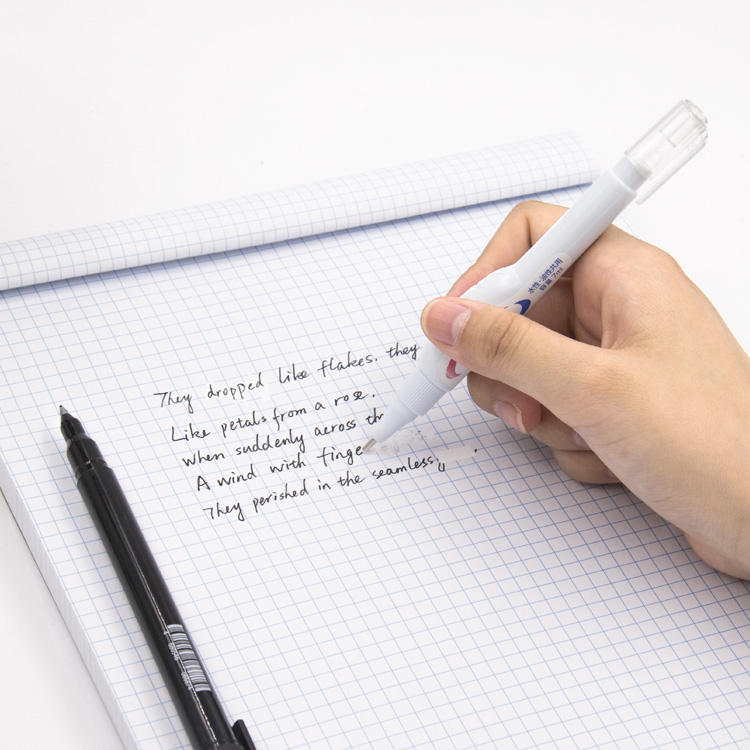 They dropped like flakes, they
Like petals from a rose.
when suddenly across th
A wind with finge
They perished in the seamless
水性·油性共用
容量7ml